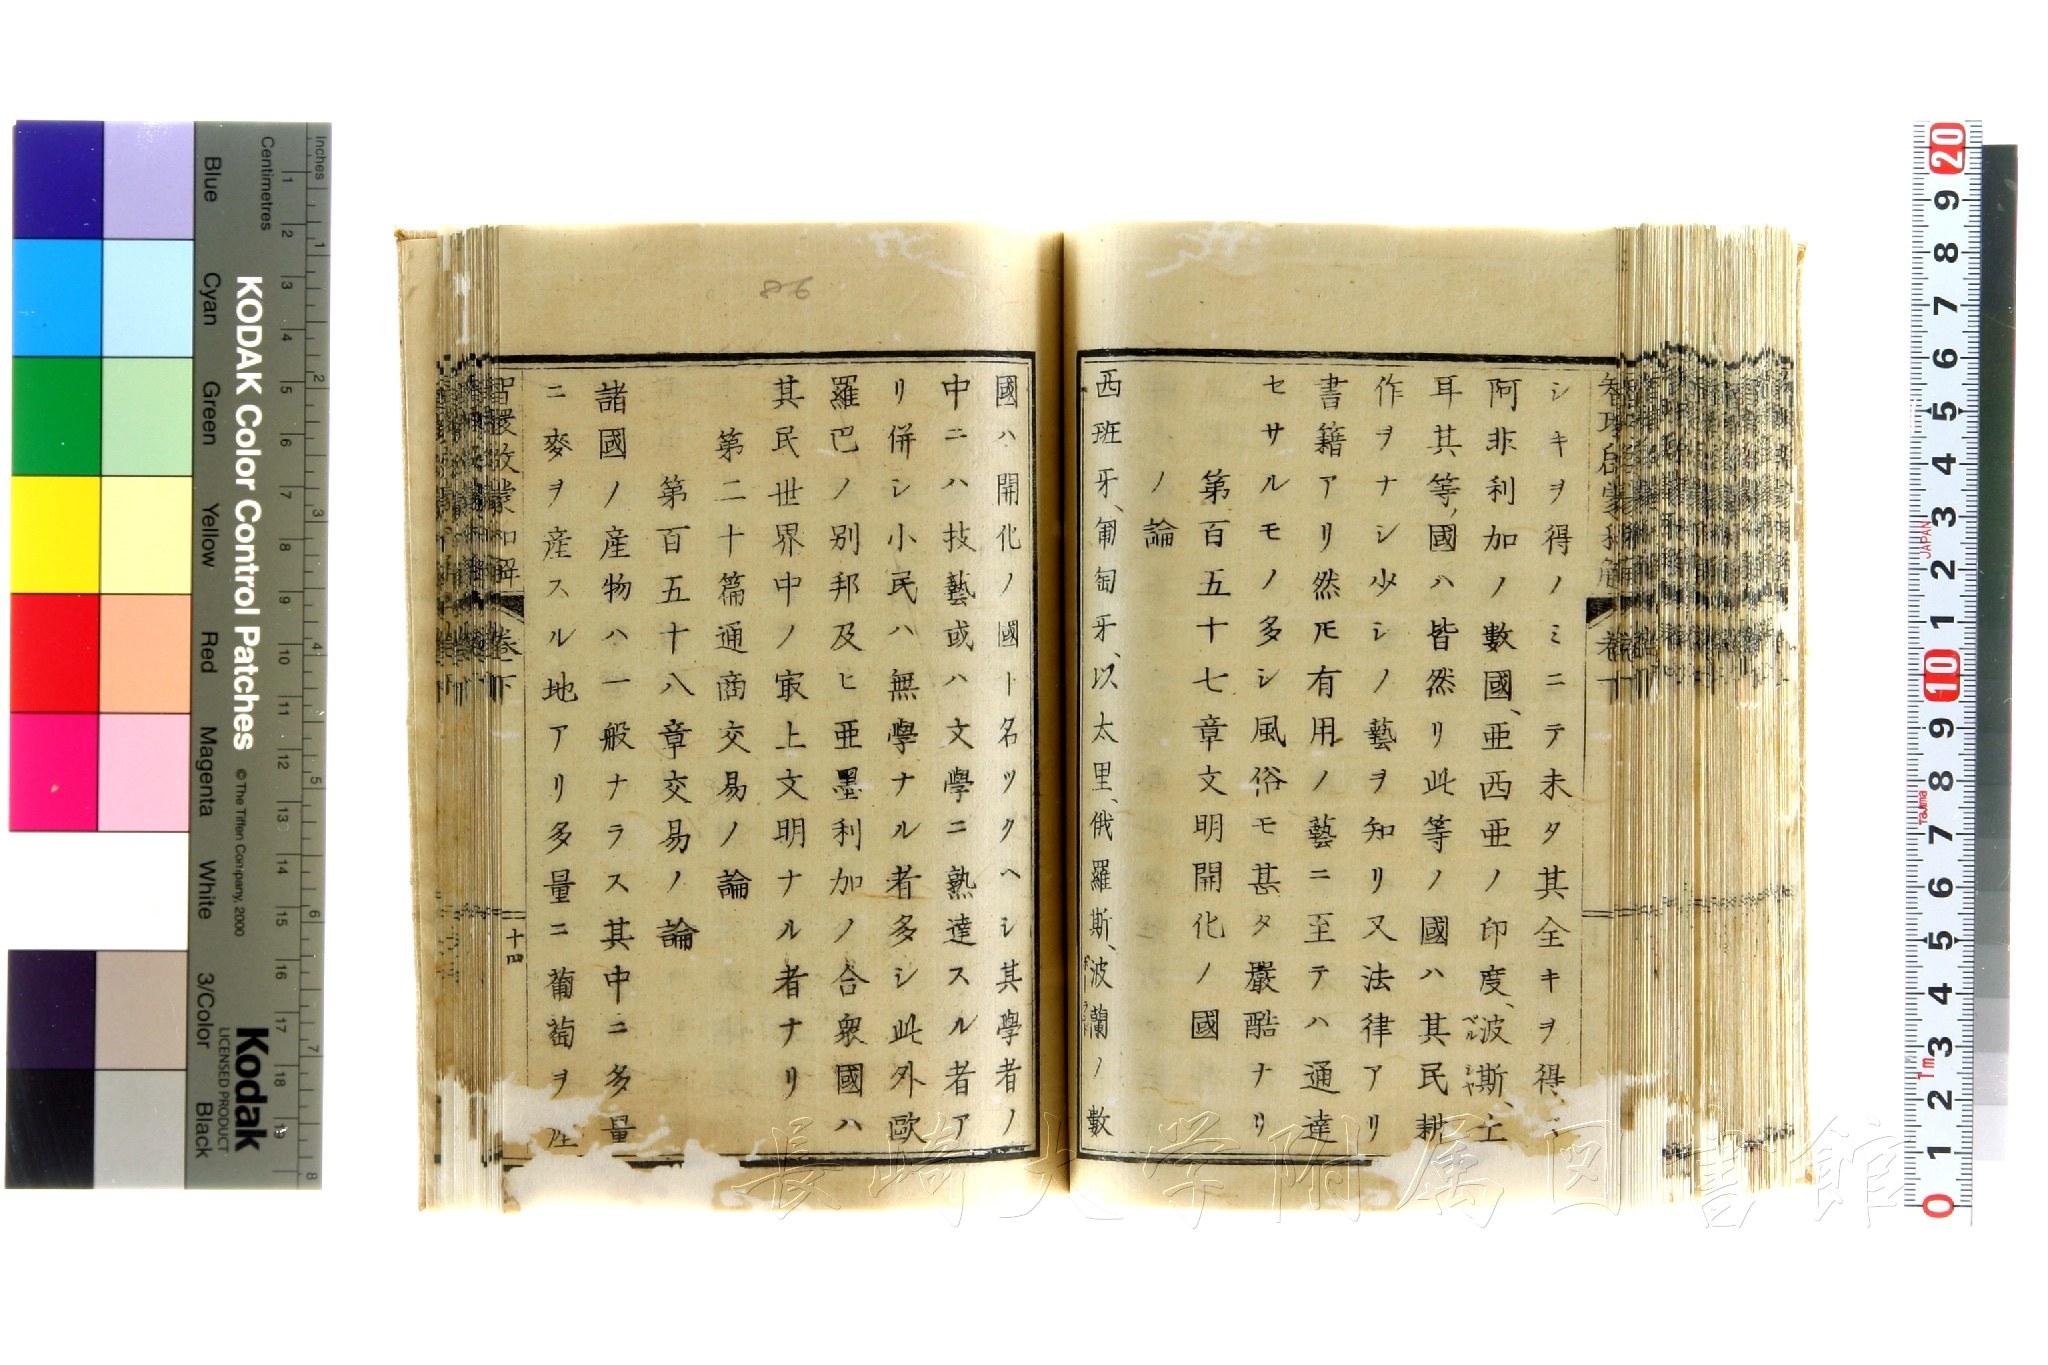 シキヲ得ノミニテ未タ其全キヲ得
阿非利加ノ數國、亜西亜ノ印度、波斯、土
ペルシヤ
耳其等、國ハ皆然リ此等ノ國ハ其民耕
作ヲナシ少シノ藝ヲ知リ又法律アリ
書籍アリ然𪜈有用ノ藝ニ至テハ通達
セサルモノ多シ風俗モ甚タ嚴酷ナリ
第百五十七章文明開化ノ國
ノ論
西班牙、葡萄牙、以太里、俄羅斯、波蘭ノ數
國ハ開化ノ國ト名ツクヘシ其學者ノ
中ニハ技藝或ハ文學ニ熟達スル者ア
リ併シ小民ハ無學ナル者多シ此外歐
羅巴ノ別邦及ヒ亜墨利加ノ合衆國ハ
其民世界中ノ冣上文明ナル者ナリ
第二十篇通商交易ノ論
第百五十八章交易ノ論
諸國ノ産物ハ一般ナラス其中ニ多量
ニ麥ヲ産スル地アリ多量ニ葡萄ヲ
智環啟蒙和解 卷下
十四
86
KODAK Color Control Patches
© The Tiffen Company, 2000
Kodak
LICENSED PRODUCT
Inches
Centimetres
Blue
Cyan
Green
Yellow
Red
Magenta
White
3/Color
Black
JAPAN
Tajima
長崎大学附属図書館